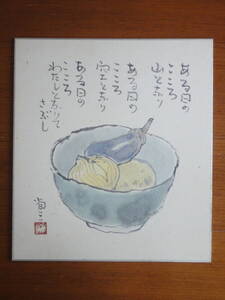 ある日の
こころ
山となり
ある日の
こころ
空となり
ある日の
こころ
わたしとなりて
さぶし